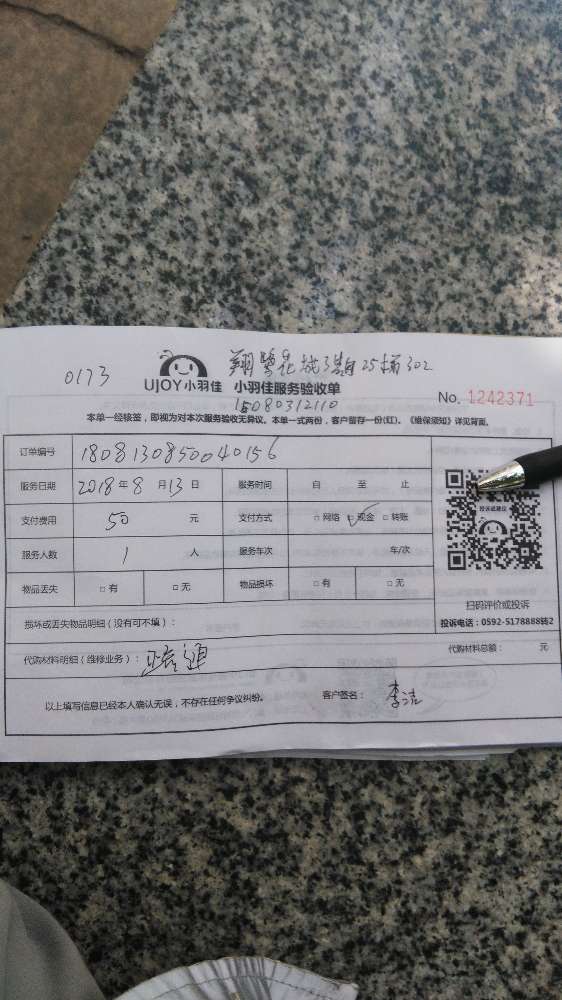 翔鹭花城3期25梯302
0173
UJOY小羽佳 小羽佳服务验收单
15080312110
No. 1242371
本单一经核签，即视为对本次服务验收无异议。本单一式两份，客户留存一份(红)。《维保须知》详见背面。
订单编号 1808130850040156
服务日期 2018年8月13日 服务时间 自 至 止
支付费用 50 元 支付方式 □网络 ☑现金 □转账
服务人数 1 人 服务车次 车/次
物品丢失 □有 □无 物品损坏 □有 □无
投诉或建议
扫码评价或投诉
投诉电话：0592-5178888转2
损坏或丢失物品明细（没有可不填）：
代购材料明细（维修业务）： 疏通 代购材料总额： 元
以上填写信息已经本人确认无误，不存在任何争议纠纷。 客户签名： 李洁